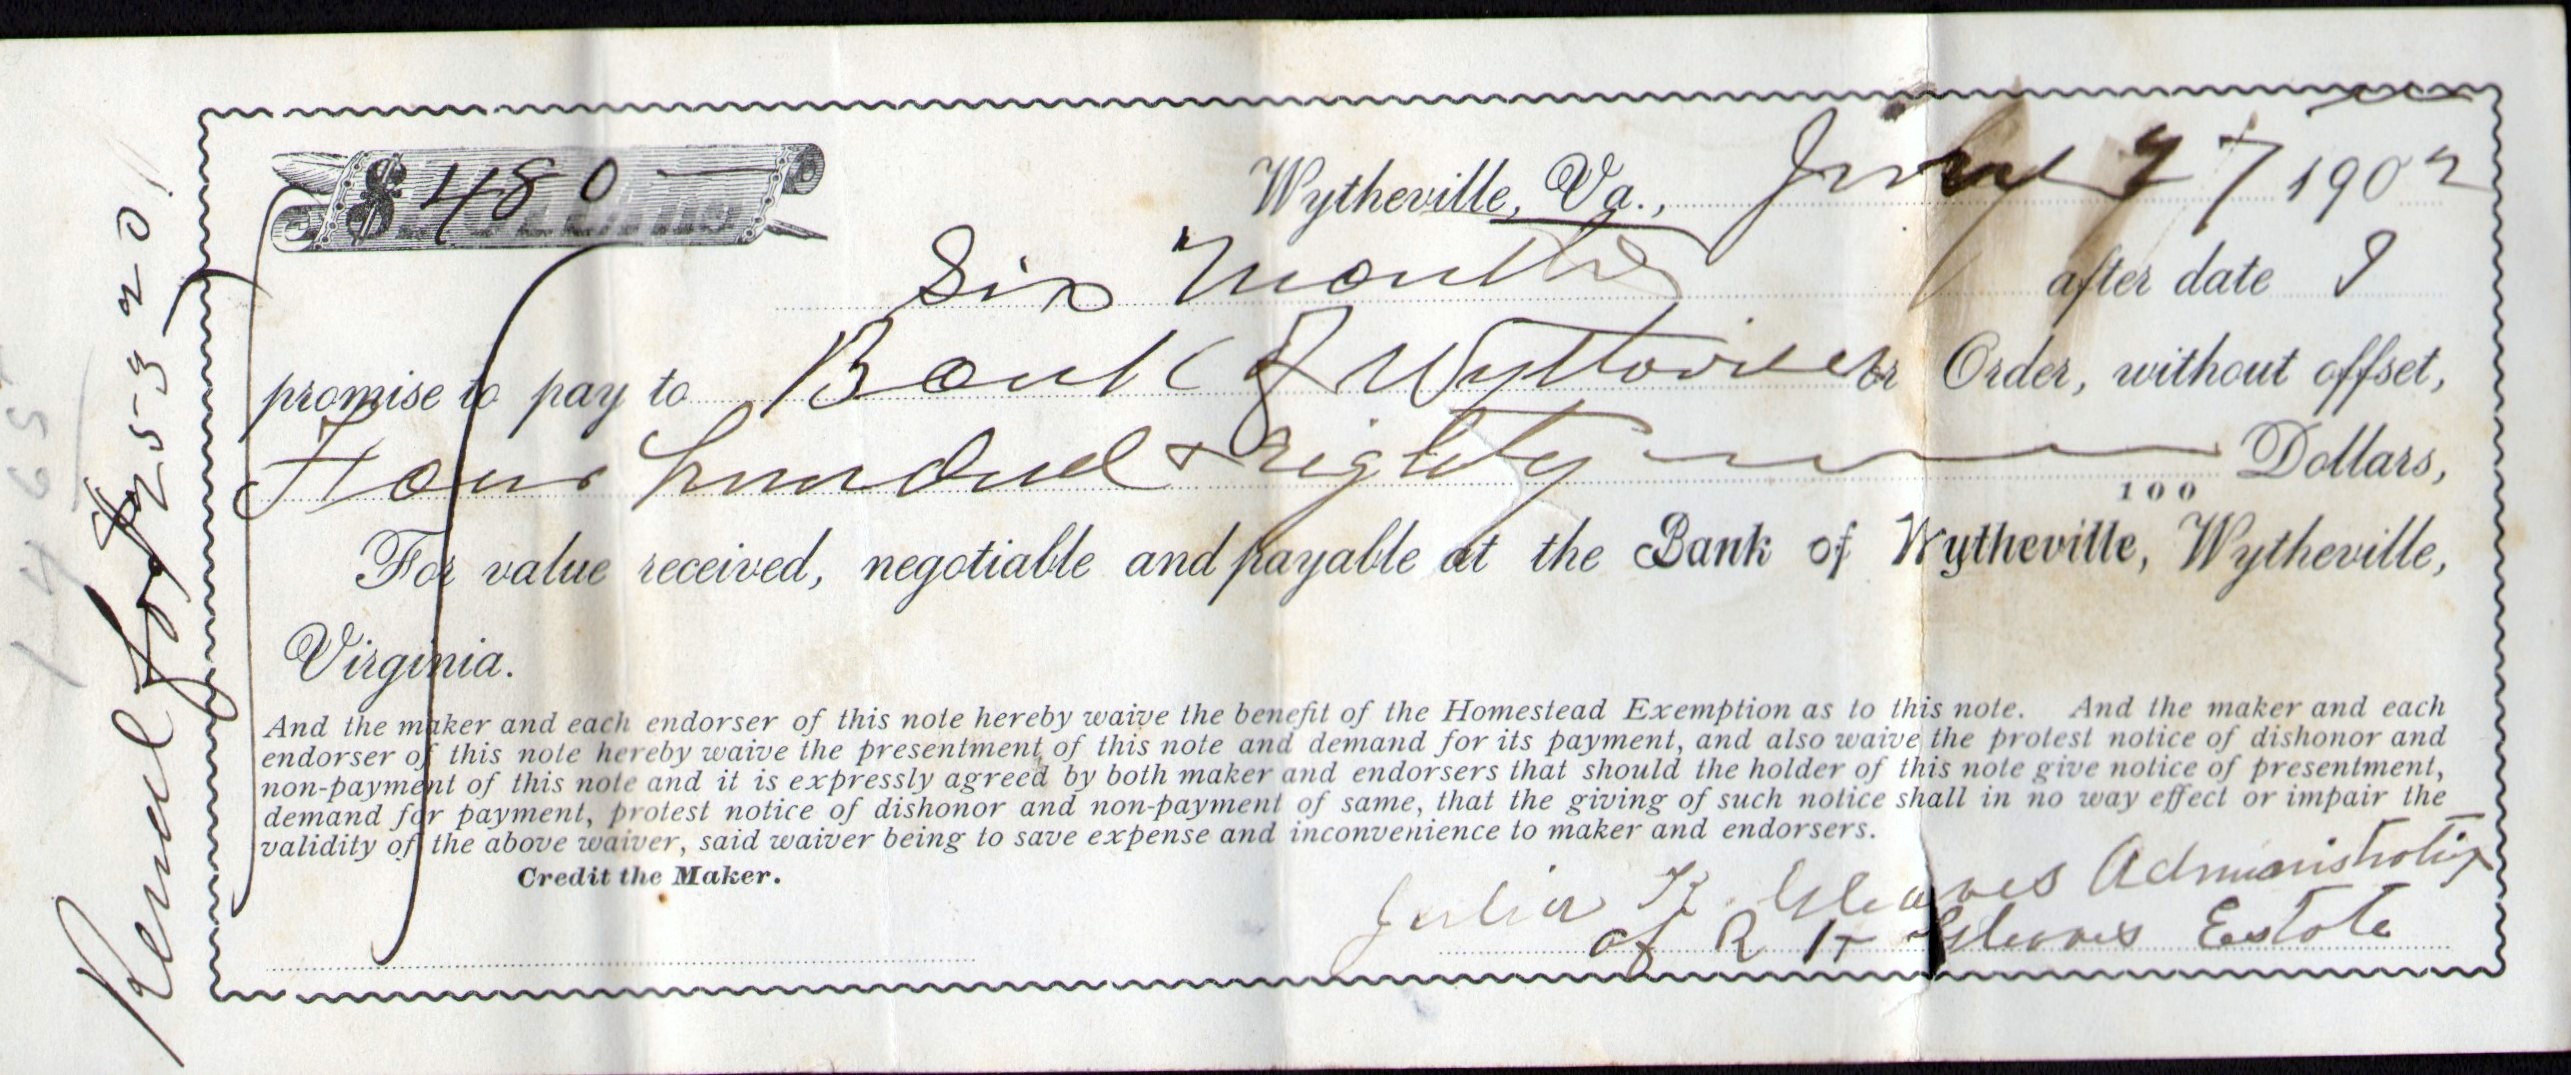 $ 480
Wytheville, Va., 27 1902
Six Months after date I
promise to pay to Bank of Wytheville or Order, without offset,
Four hundred & Eighty Dollars,
100
For value received, negotiable and payable at the Bank of Wytheville, Wytheville,
Virginia.
And the maker and each endorser of this note hereby waive the benefit of the Homestead Exemption as to this note. And the maker and each
endorser of this note hereby waive the presentment of this note and demand for its payment, and also waive the protest notice of dishonor and
non-payment of this note and it is expressly agreed by both maker and endorsers that should the holder of this note give notice of presentment,
demand for payment, protest notice of dishonor and non-payment of same, that the giving of such notice shall in no way effect or impair the
validity of the above waiver, said waiver being to save expense and inconvenience to maker and endorsers.
Credit the Maker.
Julia K. Gleaves Administratrix
of R H Gleaves Estate
Renewal for $253 20